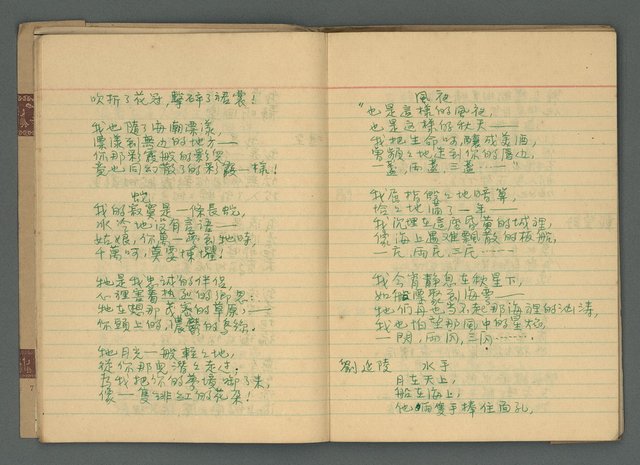 吹折了花冠,擊碎了裙裳!
我也隨了海潮漂漾,
漂漾到無邊的地方——
你那彩霞般的影兒
竟也同幻散了的彩霞一樣!
蛇
我的寂寞是一條長蛇,
冰冷地沒有言語——
姑娘,你萬一夢到牠時,
千萬呵,莫要悚懼!
牠是我忠誠的伴侶,
心裡害着熱烈的鄉思:
牠在想那茂密的草原,——
你頭上的,濃鬱的烏絲。
牠月光一般輕輕地,
從你那兒潛潛走過;
為我把你的夢境啣了來,
像一隻緋紅的花朵!
風夜
"也是這樣的風夜,
也是這樣的秋天——
我把生命呵,釀成美酒,
頻頻地送到你的唇邊,
一盞,兩盞,三盞……"
我屈指輕輕地暗算,
恰恰地滿了一年——
我沉埋在這座昏黃的城裡,
像海上遇難飄散的板船,
一片,兩片,三片……
我今宵靜息在秋星下,
如
牠們再也當不起那海裡的洶濤,
我也怕望那風中的星焰,
一閃,兩閃,三閃……
劉延陵 水手
月在天上,
船在海上,
他兩隻手捧住面孔,